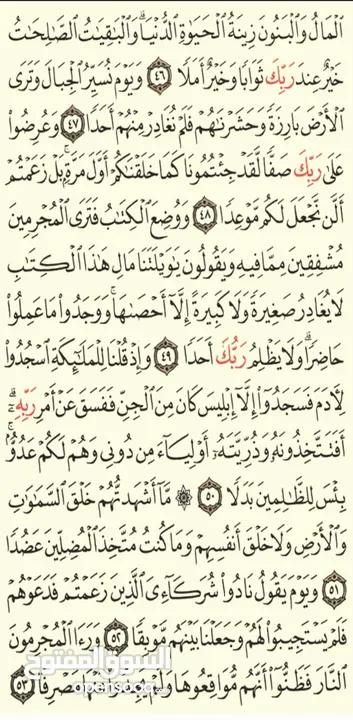 ٱلۡمَالُ وَٱلۡبَنُونَ زِينَةُ ٱلۡحَيَوٰةِ ٱلدُّنۡيَاۖ وَٱلۡبَٰقِيَٰتُ ٱلصَّٰلِحَٰتُ
خَيۡرٌ عِندَ رَبِّكَ ثَوَابٗا وَخَيۡرٌ أَمَلٗا ٤٦ وَيَوۡمَ نُسَيِّرُ ٱلۡجِبَالَ وَتَرَى
ٱلۡأَرۡضَ بَارِزَةٗ وَحَشَرۡنَٰهُمۡ فَلَمۡ نُغَادِرۡ مِنۡهُمۡ أَحَدٗا ٤٧ وَعُرِضُواْ
عَلَىٰ رَبِّكَ صَفّٗا لَّقَدۡ جِئۡتُمُونَا كَمَا خَلَقۡنَٰكُمۡ أَوَّلَ مَرَّةِۭۚ بَلۡ زَعَمۡتُمۡ
أَلَّن نَّجۡعَلَ لَكُم مَّوۡعِدٗا ٤٨ وَوُضِعَ ٱلۡكِتَٰبُ فَتَرَى ٱلۡمُجۡرِمِينَ
مُشۡفِقِينَ مِمَّا فِيهِ وَيَقُولُونَ يَٰوَيۡلَتَنَا مَالِ هَٰذَا ٱلۡكِتَٰبِ
لَا يُغَادِرُ صَغِيرَةٗ وَلَا كَبِيرَةً إِلَّآ أَحۡصَىٰهَاۚ وَوَجَدُواْ مَا عَمِلُواْ
حَاضِرٗاۗ وَلَا يَظۡلِمُ رَبُّكَ أَحَدٗا ٤٩ وَإِذۡ قُلۡنَا لِلۡمَلَٰٓئِكَةِ ٱسۡجُدُواْ
لِأٓدَمَ فَسَجَدُوٓاْ إِلَّآ إِبۡلِيسَ كَانَ مِنَ ٱلۡجِنِّ فَفَسَقَ عَنۡ أَمۡرِ رَبِّهِۦٓۗ
أَفَتَتَّخِذُونَهُۥ وَذُرِّيَّتَهُۥٓ أَوۡلِيَآءَ مِن دُونِي وَهُمۡ لَكُمۡ عَدُوُّۢۚ
بِئۡسَ لِلظَّٰلِمِينَ بَدَلٗا ٥٠ ۞ مَّآ أَشۡهَدتُّهُمۡ خَلۡقَ ٱلسَّمَٰوَٰتِ
وَٱلۡأَرۡضِ وَلَا خَلۡقَ أَنفُسِهِمۡ وَمَا كُنتُ مُتَّخِذَ ٱلۡمُضِلِّينَ عَضُدٗا
٥١ وَيَوۡمَ يَقُولُ نَادُواْ شُرَكَآءِيَ ٱلَّذِينَ زَعَمۡتُمۡ فَدَعَوۡهُمۡ
فَلَمۡ يَسۡتَجِيبُواْ لَهُمۡ وَجَعَلۡنَا بَيۡنَهُم مَّوۡبِقٗا ٥٢ وَرَءَا ٱلۡمُجۡرِمُونَ
ٱلنَّارَ فَظَنُّوٓاْ أَنَّهُم مُّوَاقِعُوهَا وَلَمۡ يَجِدُواْ عَنۡهَا مَصۡرِفٗا ٥٣
السوق المفتوح
opensooq.com